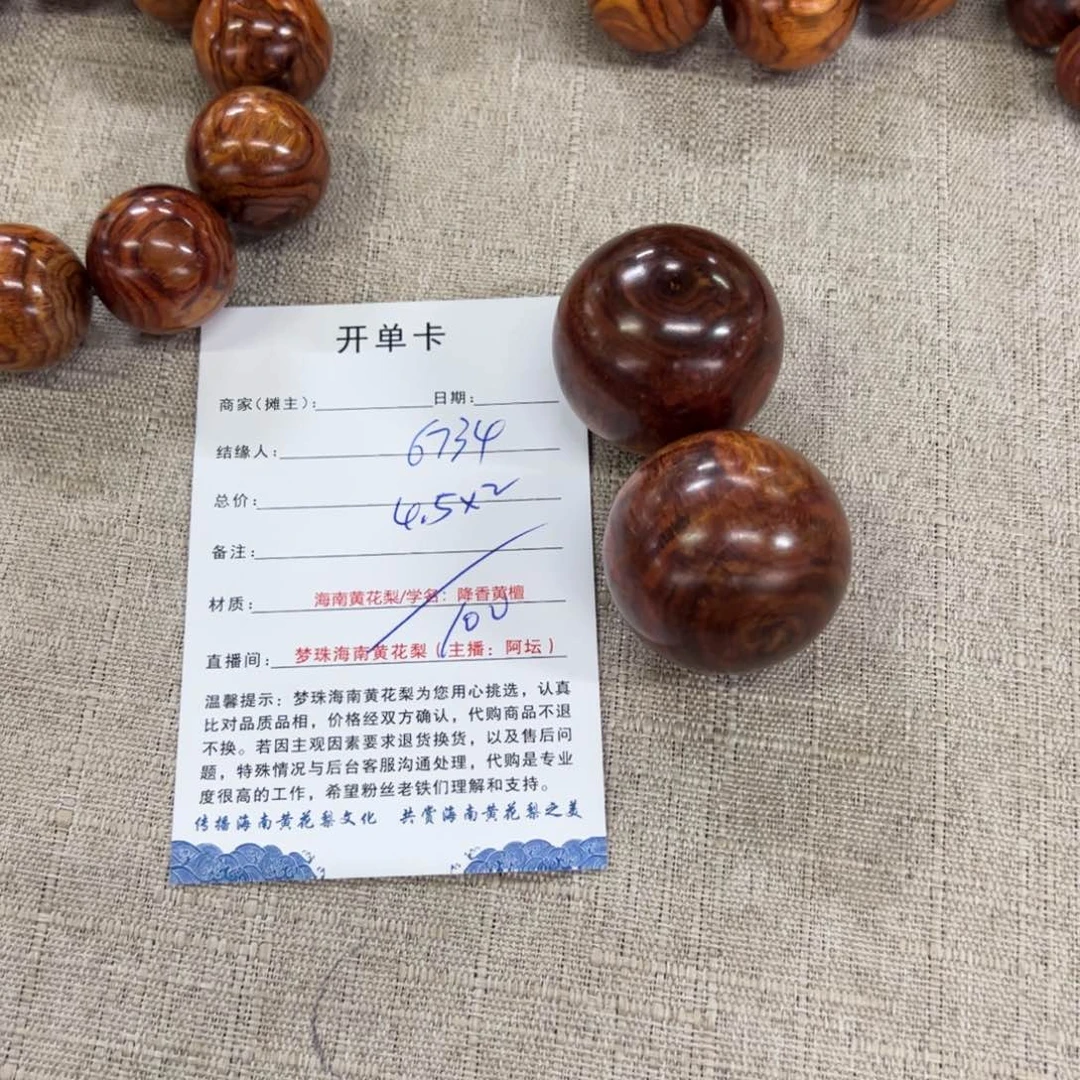 开单卡
商家(摊主): 日期:
结缘人: 6734
总价: 4.5x2
备注:
材质: 海南黄花梨/学名: 降香黄檀
100
直播间: 梦珠海南黄花梨(主播: 阿坛)
温馨提示: 梦珠海南黄花梨为您用心挑选, 认真
比对品质品相, 价格经双方确认, 代购商品不退
不换。若因主观因素要求退货换货, 以及售后问
题, 特殊情况与后台客服沟通处理, 代购是专业
度很高的工作, 希望粉丝老铁们理解和支持。
传播海南黄花梨文化 共赏海南黄花梨之美